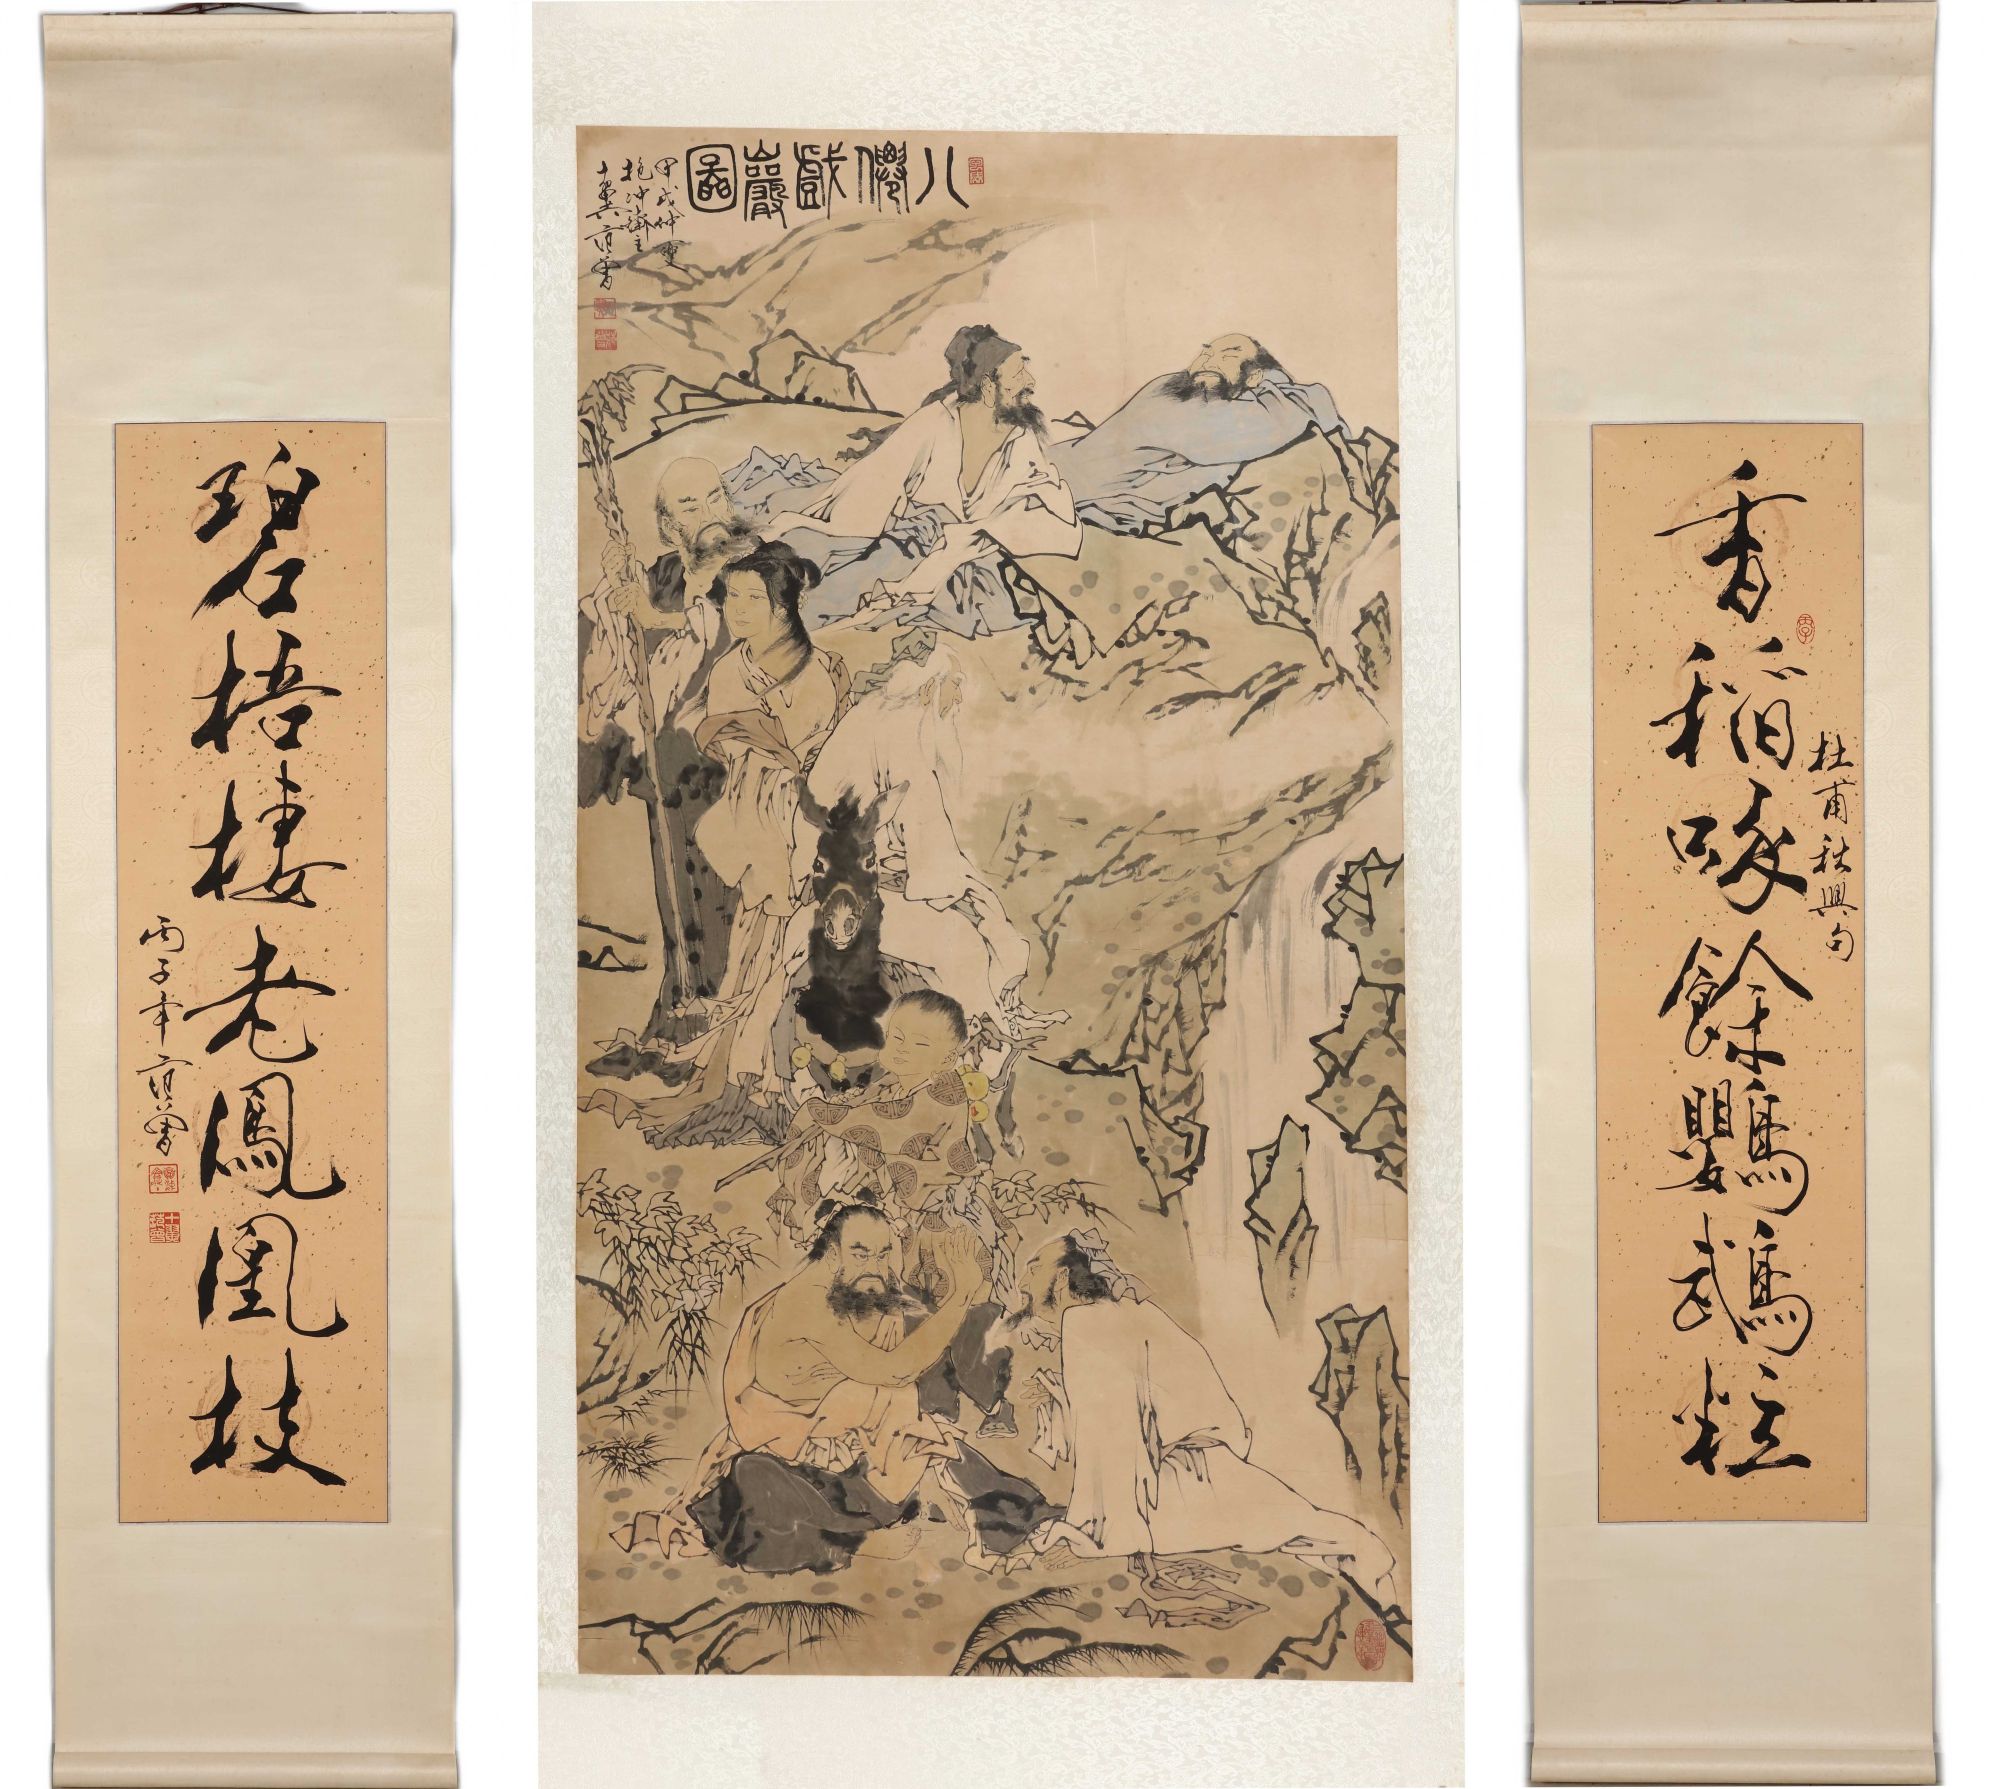 香稻啄餘鸚鵡粒
杜甫秋興句
八僊戲巖圖
甲戌仲夏
抱沖齋主
十翼范曾
碧梧棲老鳳凰枝
丙子年范曾